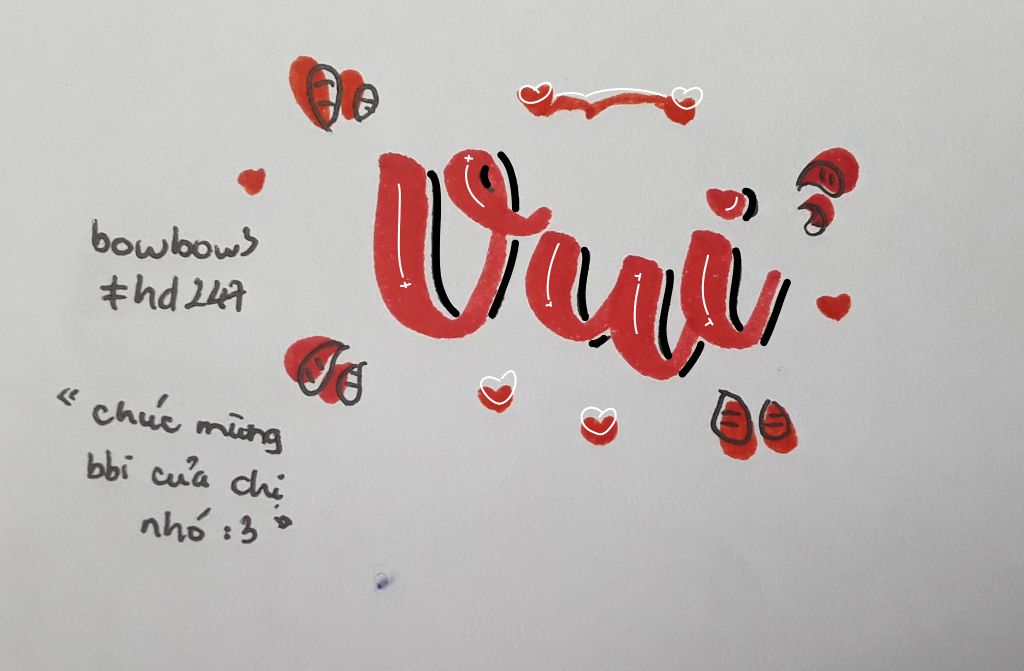 Vui
bowbows
#hd247
“ chúc mừng
bbi của chị
nhó :3 ”